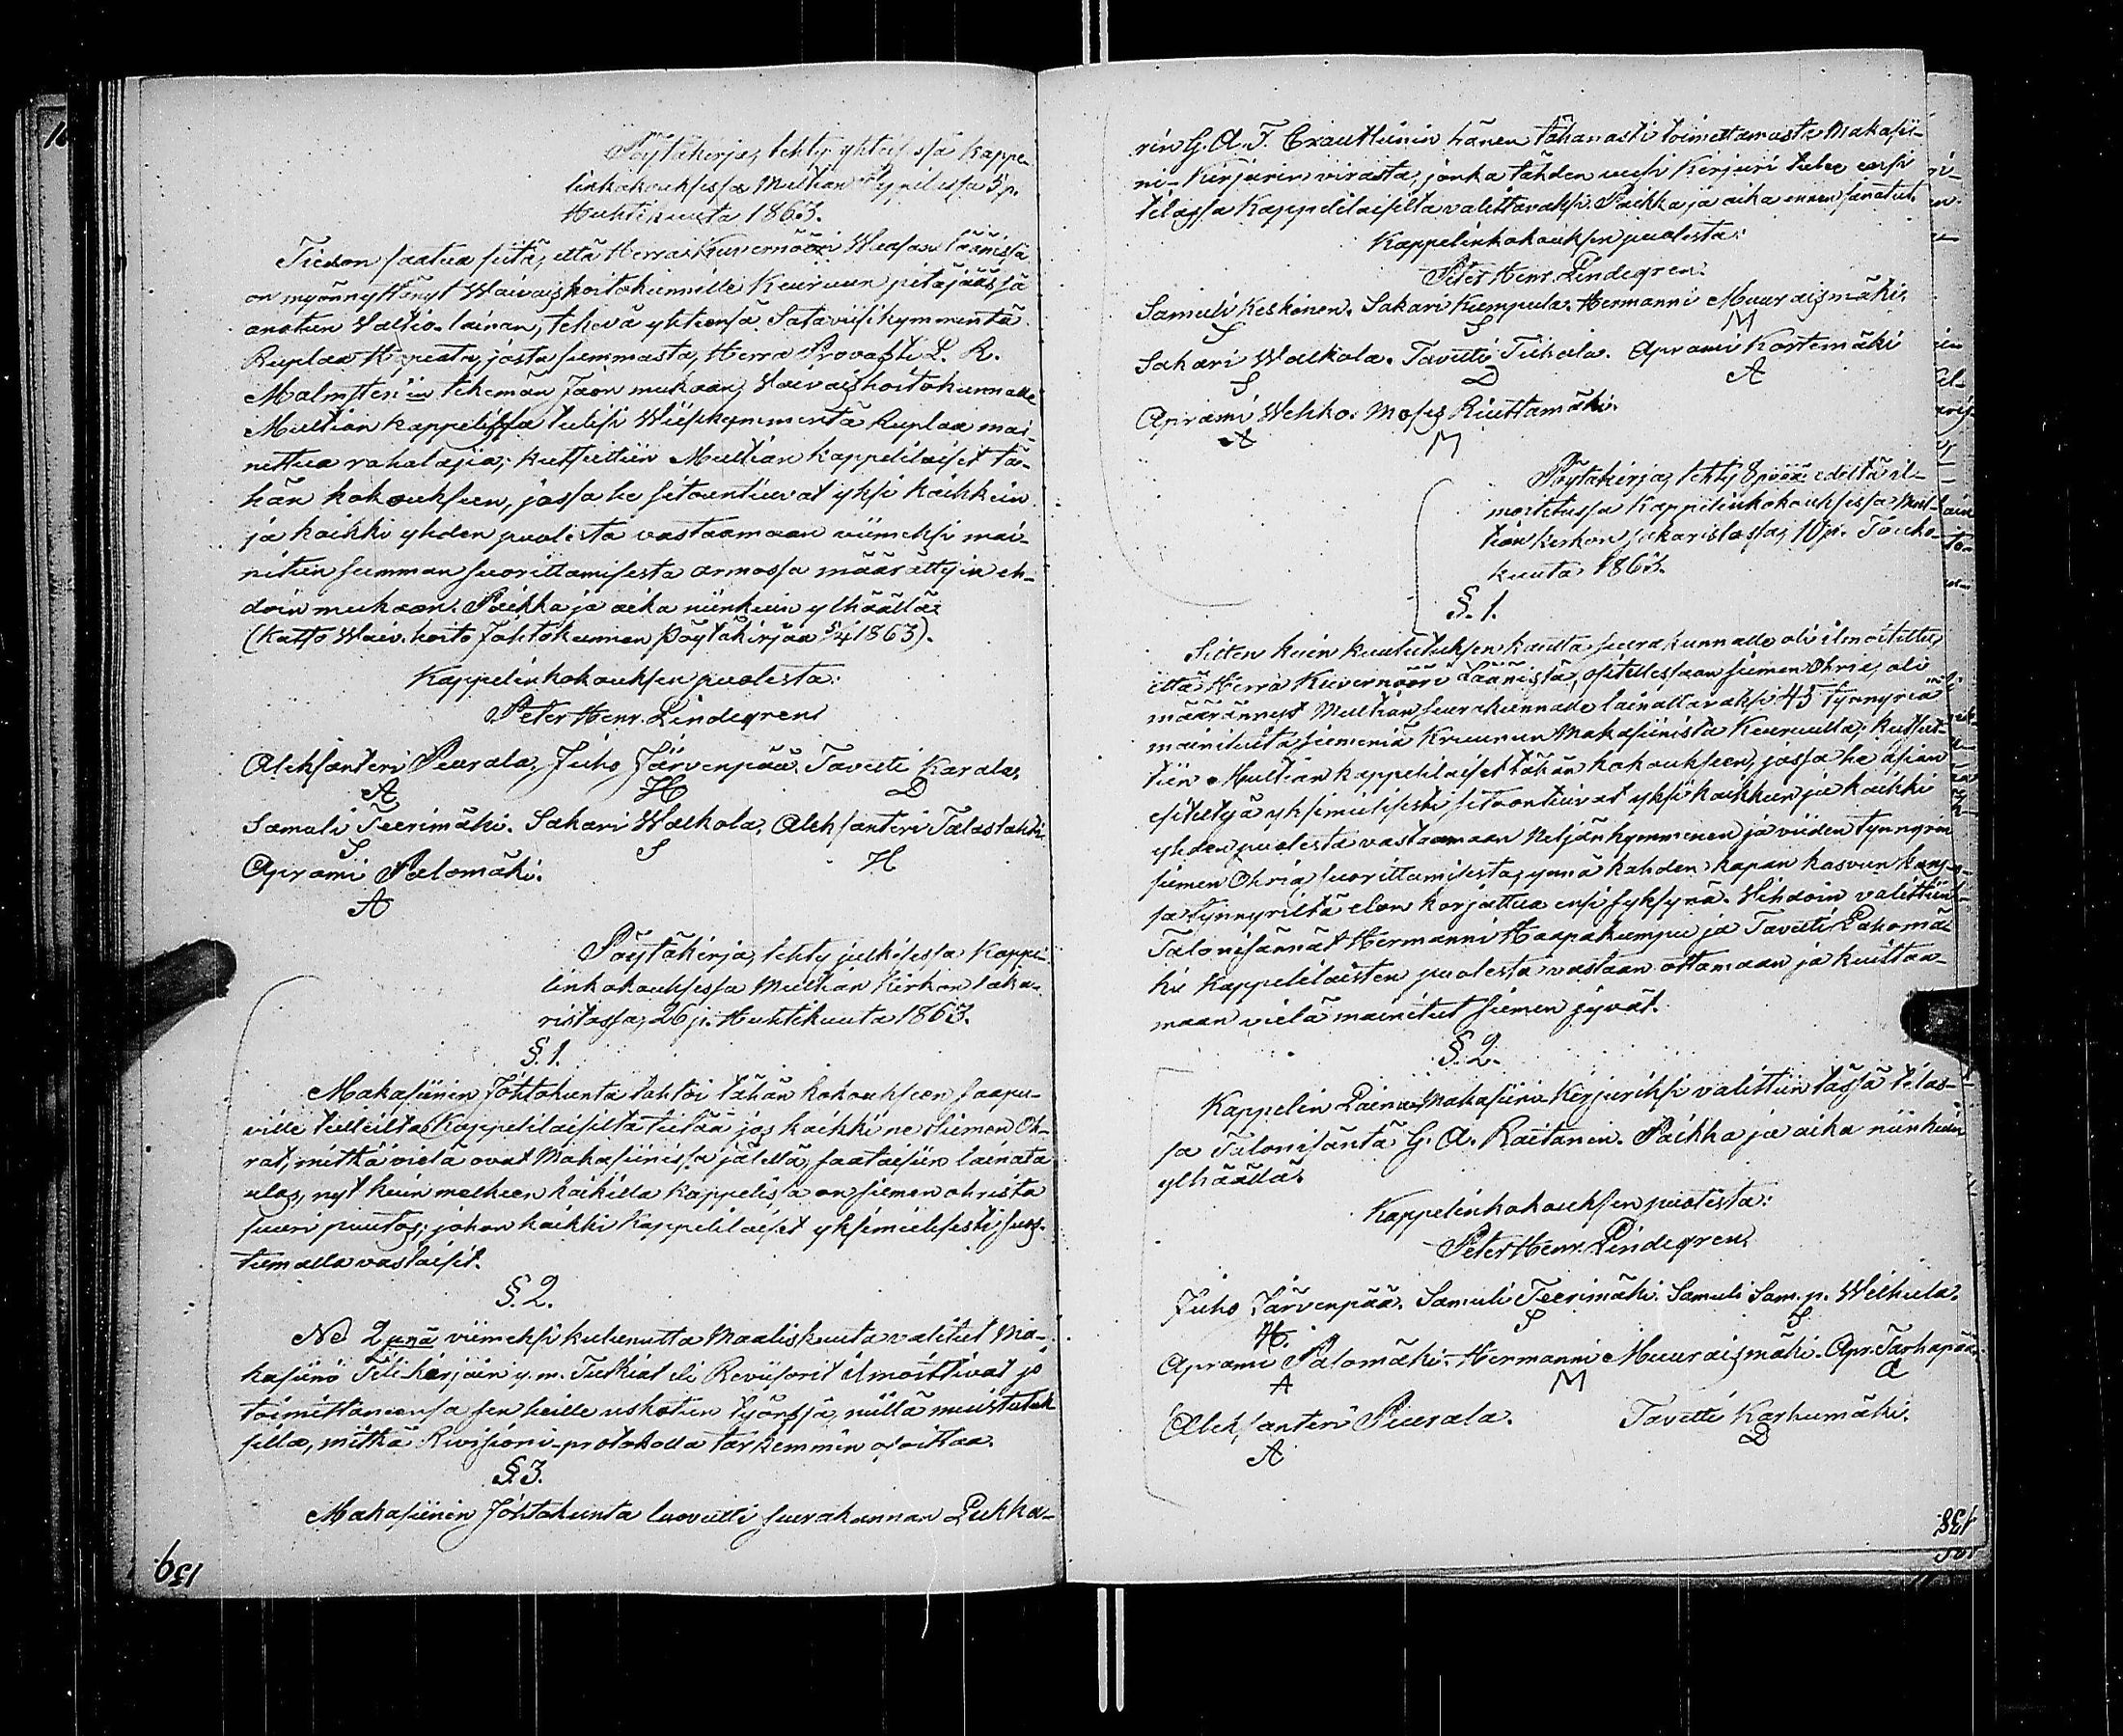 Pöytäkirja, tehty yhteisessä Kappe-
linkokouksessa Multian Pappilassa 5 p.
Huhtikuuta 1863.
Tiedon saatua siitä, että Herra Kuvernööri Waasan läänissä
on myönnyttänyt Waivaishoitokunnille Keuruun pitäjäässä
anotun Waltio-lainan, tekevä yhteensä Sataviisikymmentä
Ruplaa Hopeata, josta summasta, Herra Provasti L. R.
Malmsten'in tekemän Jaon mukaan, Waivaishoitokunnalle
Multian kappelissa tulisi Wiisikymmentä Ruplaa mai-
nittua rahalajia; kutsuttiin Multian kappelilaiset tä-
hän kokoukseen, jossa he sitountuuvat yksi kaikkein
ja kaikki yhden puolesta vastaamaan viimeksi mai-
nitun summan suorittamisesta armossa määrättyin eh-
doin mukaan. Paikka ja aika niinkuin ylhäällä.
(Katso Waiv.hoito Johtokunnan Pöytäkirjaa 5/4 1863).
Kappelinkokouksen puolesta:
Peter Henr. Lindegren.
Aleksanteri Peurala, Juho Järvenpää. Tavetti Karala,
A H D
Samuli Teerimäki. Sakari Walkola, Aleksanteri Talaslahti.
S S H
Aprami Palomäki.
A
Pöytäkirja, tehty julkisessa Kappe-
linkokouksessa Multian Kirkon saka-
ristossa, 26 p. Huhtikuuta 1863.
§. 1.
Makasiinin Johtokunta tahtoi tähän kokoukseen saapu-
ville tulleilta Kappelilaisilta tietää jos kaikki ne Siemen Oh-
rat, mitkä vielä ovat Makasiinissa jälellä, saataisiin lainata
ulos, nyt kuin melkeen kaikilla Kappelissa on siemen ohrista
suuri puutos; johon kaikki Kappelilaiset yksimielisesti suos-
tumalla vastaisit.
§. 2.
Ne 2 p:nä viimeksi kulunutta Maaliskuuta valitut Ma-
kasiino Tili-kirjain y.m. Tutkiat eli Reviisorit ilmoittivat jo
toimittaneensa sen heille uskotun työnsä, niillä muistutuk
silla, mitkä Rivisioni-protokolla tarkemmin osoittaa.
§. 3.
Makasiinin Johtokunta luovutti seurakunnan Lukka-
159
rin G. A. F. Crautluinin hänen tähänasti toimittamasta Makasii-
ni-Kirjurin virasta, jonka tähden uusi Kirjuri tulee ensi
tilassa Kappelilaisilta valittavaksi. Paikka ja aika ennen sanatut.
Kappelinkokouksen puolesta:
Peter Henr. Lindegren.
Samuli Keskinen. Sakari Kumpula. Hermanni Muuraismäki,
S S M
Sakari Walkola. Tavetti Tuhala. Aprami Kortemäki
S D A
Aprami Wehko. Moses Riuttamäki.
A M
Pöytäkirja, tehty 8 pvää edeltä il-
moitetussa Kappelinkokouksessa Mul-
tian kirkon sakaristossa, 10 p. Touko-
kuuta 1863.
§. 1.
Sitten kuin kuulutuksen kautta seurakunnalle oli ilmoitettu,
että Herra Kuvernööri Läänistä, ositellessaan siemen Ohria, oli
määrännyt Multian seurakunnalle lainattavaksi 45 Tynnyriä
mainituita siemeniä Kruunun Makasiinista Keuruulla; kutsut-
tiin Multian kappelilaiset tähän kokoukseen, jossa he asian
esiteltyä yksimielisesti sitountuivat yksi kaikkein ja kaikki
yhden puolesta vastaamaan Neljänkymmenen ja viiden tynnyrin
siemen Ohria, suorittamisesta, ynnä kahden kapan kasvun kans-
sa tynnyriltä elon korjattua ensi syksynä. Wihdoin valittiin
Talonisännät Hermanni Haapakumpu ja Tavetti Lahomä-
ki Kappelilaisten puolesta vastaan ottamaan ja kuittaa-
maan vielä mainitut siemen jyvät.
§. 2.
Kappelin Laina-Makasiini-Kirjuriksi valittiin tässä tilas-
sa Talonisäntä G. A. Raitanin. Paikka ja aika niinkuin
ylhäällä.
Kappelinkokouksen puolesta:
Peter Henr. Lindegren.
Juho Järvenpää. Samuli Teerimäki. Samuli Sam. p. Wilhula.
H. S S
Aprami Palomäki. Hermanni Muuraismäki. Apr. Tarhapää.
A M A
Aleksanteri Peurala. Tavetti Karhumäki.
A D
158